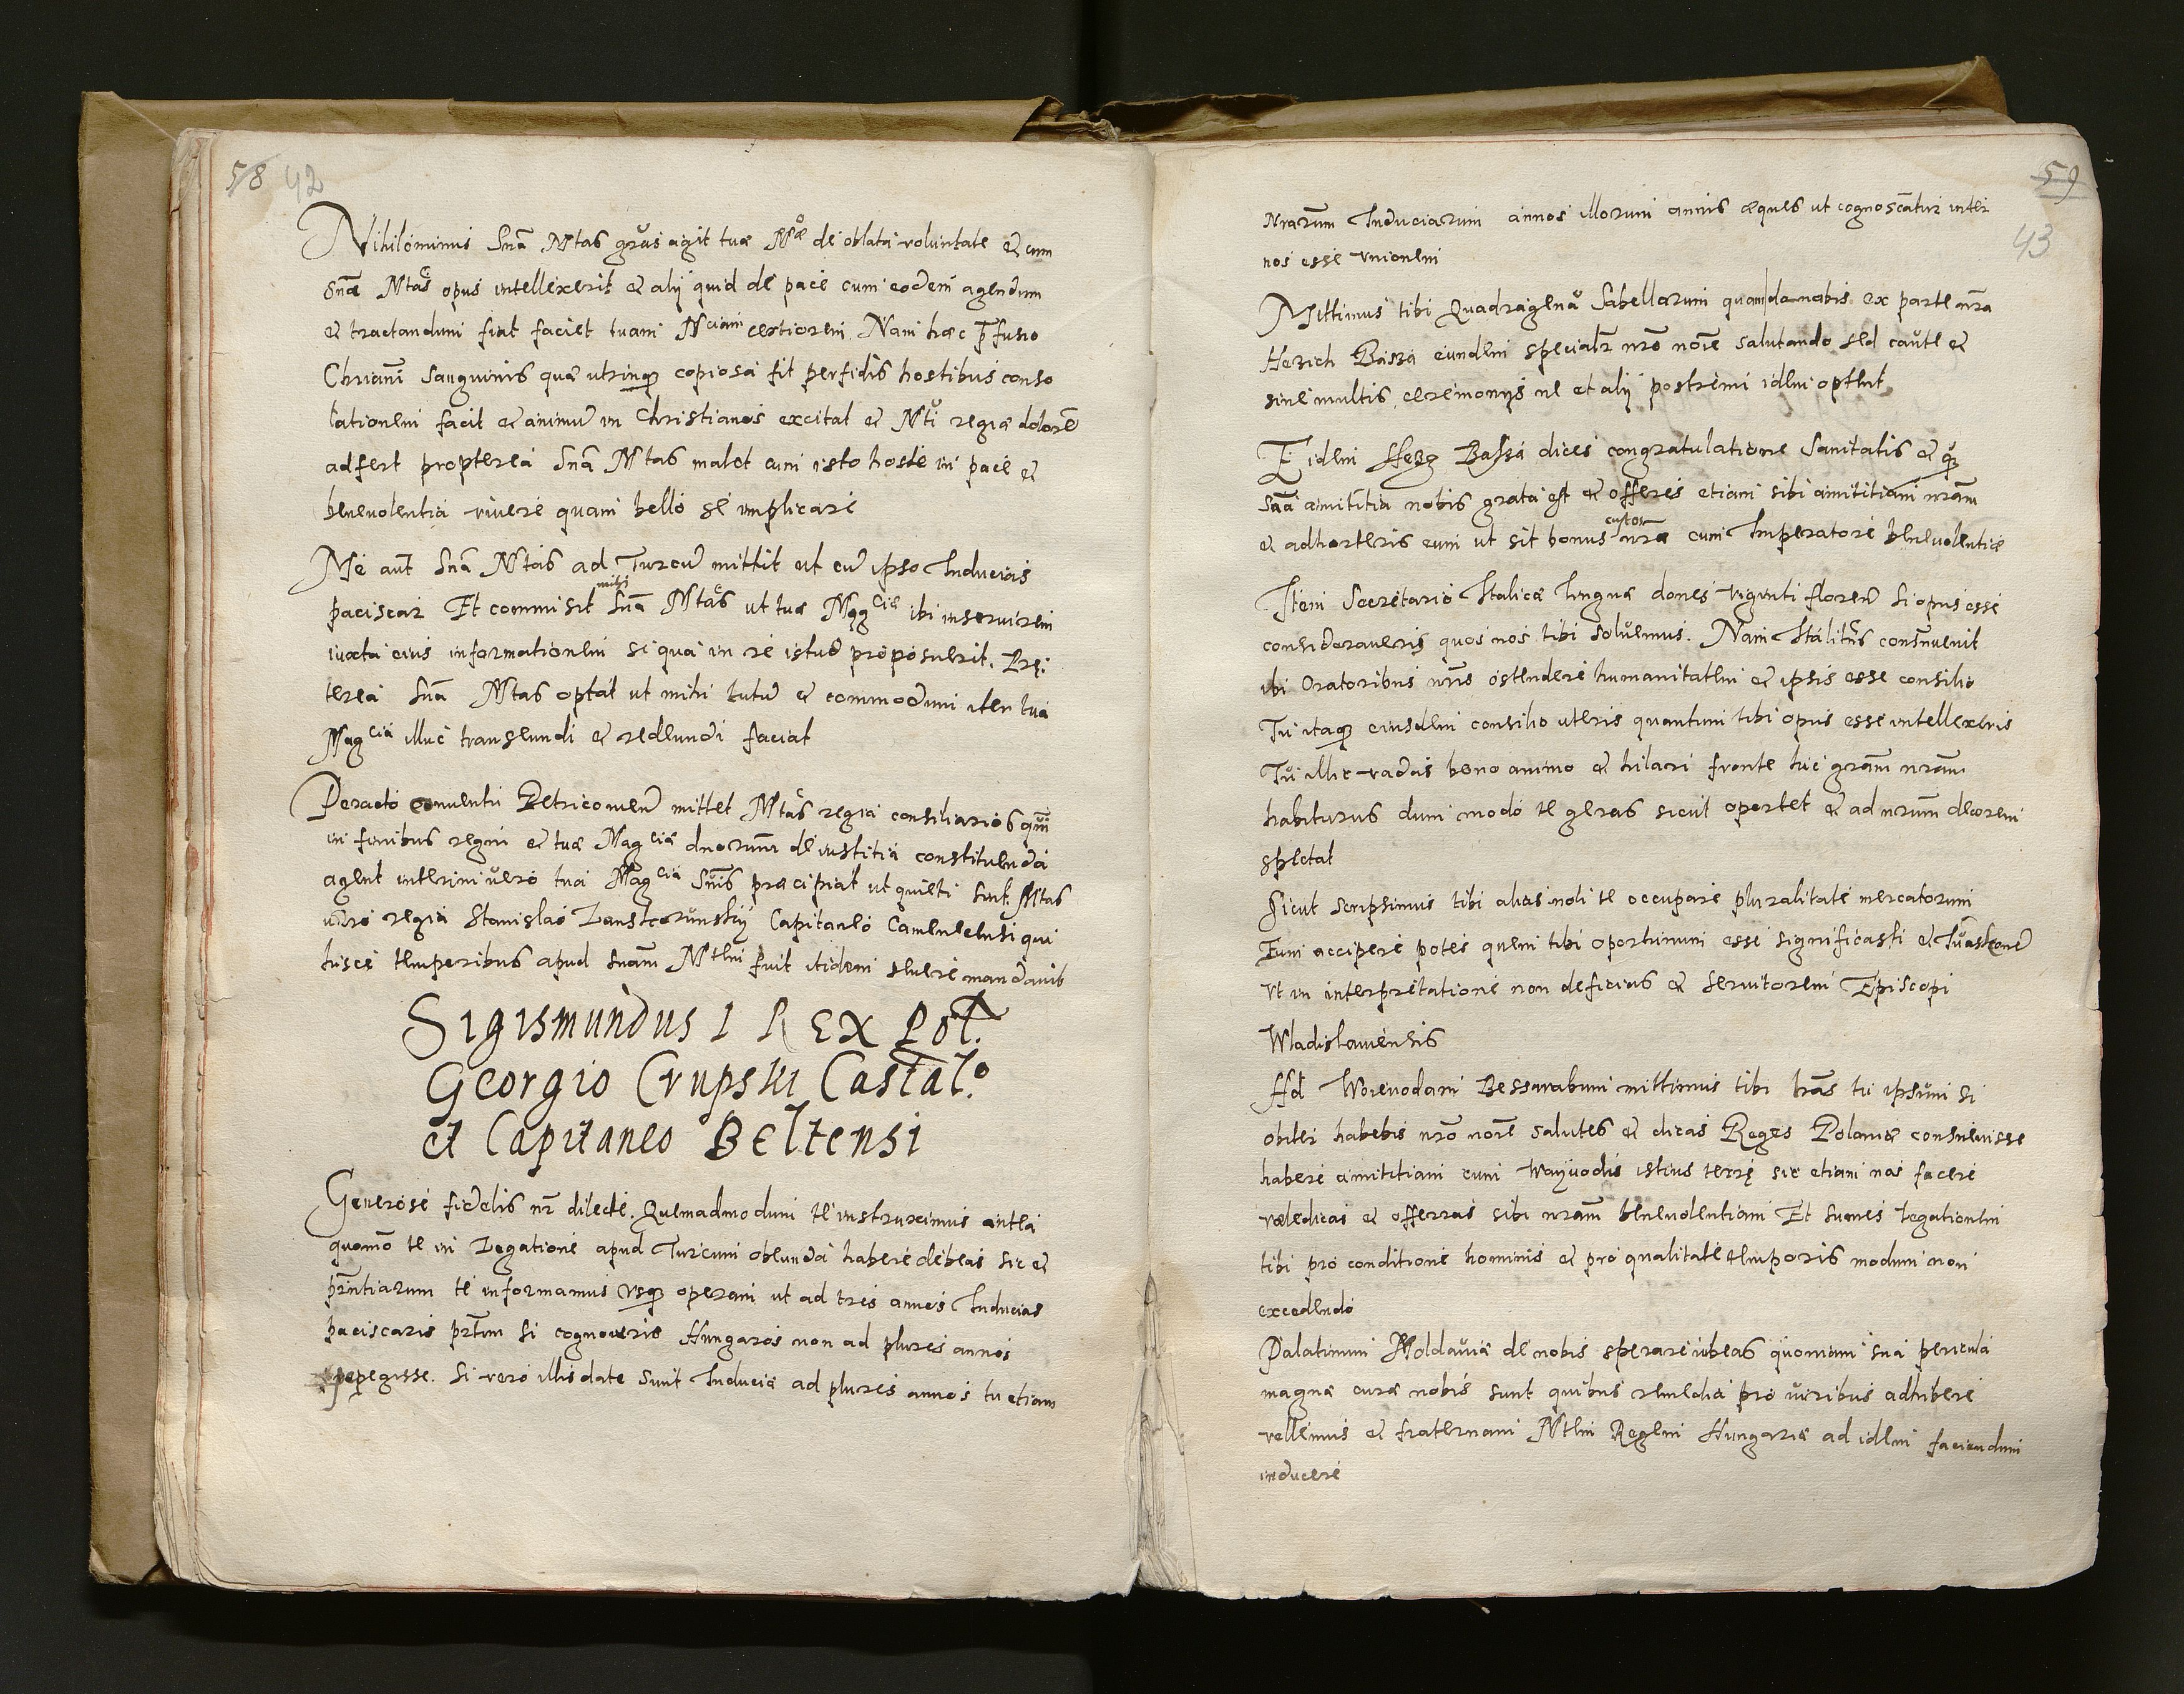 58 42
Nihilominus Sua Mtas gras agit tuæ Mciæ de oblata voluntate et cum
Suæ Mtas opus intellexerit et alij quid de pace cum eodem agendum
et tractandum fiat faciet tuam Mciam certiorem. Nam hæc pfusio
Chriani Sanguinis quæ utrinq copiosa fit perfidis hostibus conso
lationem facit et animu in Christianos excitat et Mti regiæ dolore
adfert propterea Sua Mtas malet cum isto hoste in pace et
beneuolentia viuere quam bello se implicare
Me aut Sua Mtas ad Turcu mittit ut cu ipso Inducias
paciscar Et commisit mihi Sua Mtas ut tuæ Mag ciæ ibi inseruirem
iuxta eius informationem si qua in re istud proposuerit. Prę:
terea Sua Mtas optat ut mihi tutu et commodum iter tua
Mag cia illuc transeundi et redeundi faciat
Peracto conuentu Petricouien mittet Mtas regia consiliarios qui
in finibus regni et tuæ Mag ciæ dnorum de iustitia constituenda
agent interim uero tua Mag cia Suis præcipiat ut quieti sint. Mtas
uero regia Stanislao Lanskorunskij Capitaneo Camenecensi qui
hisce temporibus apud Suam Mtem fuit itidem stuere mandauit
Sigismundus I REX Pol.
Georgio Crupski Castal.o
et Capitaneo BElzensi
Generose fidelis nr dilecte. Quemadmodum te instruximus antea
quomo te in Legatione apud Turcum obeunda habere debeas sic et
prntiarum te informamus usq operam ut ad tres annos Inducias
paciscaris prtim si cognoueris Hungaros non ad plures annos
pepegisse. Si vero illis datæ sunt Induciæ ad plures annos tu etiam
59
43
Nrarum Induciarum annos illorum annis æques ut cognoscatur inter
nos esse unionem
Mittimus tibi Quadragena Sabellorum quam da nobis ex parte nra
Herich Bassa eundem specialr nro noie salutando sed caute et
sine multis ceremonijs ne et alij postremi idem optent
Eidem Herz Bassa dices congratulatione Sanitatis et q
Sua amititia nobis grata est et offeres etiam sibi amititiam nram
et adhorteris eum ut sit bonus custos nra cum Imperatore beneuolentiæ
Item Secretario Italicæ linguæ dones viginti floren si opus esse
consideraueris quos nos tibi soluemus. Nam Italitus consueuit
ibi Oratoribus nris ostendere humanitatem et ipsis esse consilio
Tu itaq eiusdem consilio uteris quantum tibi opus esse intellexeris
Tu illic vadas bono animo et hilari fronte hic gram nram
habiturus dum modo te geras sicut oportet et ad nrum decorem
spectat
Sicut scripsimus tibi alias noli te occupare pluralitate mercatorum
Eum accipere potes quem tibi oportunum esse significasti et
Vt in interpretatione non deficias et seruitorem Episcopi
Wladislauiensis
Ad Woieuodam Bessarabum mittimus tibi lras tu ipsum si
obiter habebis nro noie salutes et dicas Reges Poloniæ consueuisse
habere amititiam cum Wayuodis istius terrę sic etiam nos facere
valedicas et offerras sibi nram beneuolentiam Et sumes legationem
tibi pro conditione hominis et pro qualitate temporis modum non
excedendo
Palatinum Moldauiæ de nobis sperare iubeas quoniam sua pericula
magnæ curæ nobis sunt quibus remedia pro uiribus adhibere
vellemus et fraternam Mtem Regem Hungariæ ad idem faciendum
inducere